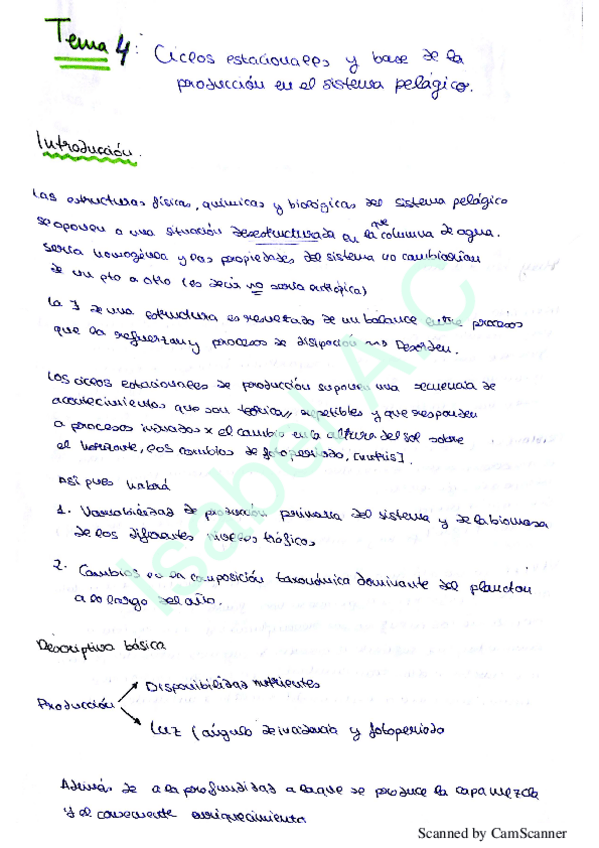 Tema 4: Ciclos estacionales y base de la
producción en el sistema pelágico.
Introducción.
Las estructuras físicas, químicas y biológicas del sistema pelágico
se oponen a una situación desestructurada en la que columna de agua.
sería homogénea y las propiedades del sistema no cambiarían
de un pto a otro (es decir no sería
La ∃ de una estructura es resultado de un balance entre procesos
que la refuerzan y procesos de disipación → Desorden.
Los ciclos estacionales de producción suponen una secuencia de
acontecimientos que son teórica// repetibles y que responden
a procesos iniciados x el cambio en la altura del sol sobre
el horizonte, los cambios de fotoperiodo, [nutris].
Así pues habrá
1. Variabilidad de producción primaria del sistema y de la biomasa
de los diferentes niveles tróficos
2. Cambios en la composición taxonómica dominante del plancton
a lo largo del año.
Descriptiva básica
Producción
Disponibilidad nutrientes
Luz (ángulo de incidencia y fotoperiodo
Además de a la profundidad a la que se produce la capa mezcla
y el consecuente enriquecimiento
Isabel A.C
Scanned by CamScanner